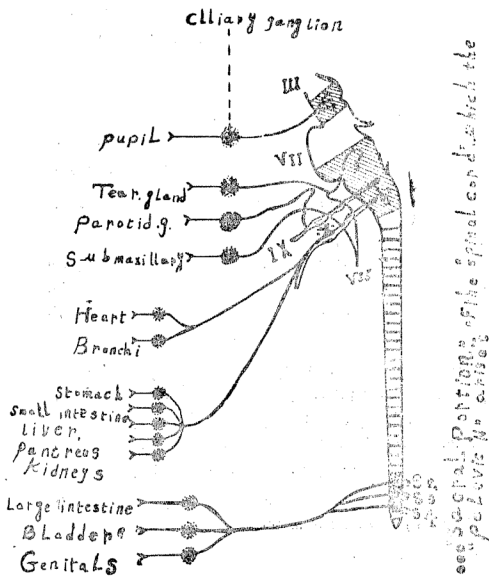 clliary ganglion
III
pupil
VII
Tear.gland
Parotid.g.
Submaxillary
IX
VII
Heart
Bronchi
Stomach
Small intestine
liver,
pantreus
kidneys
Large intestine
Bladder
Genitals
Sacral Portion of the spinal cord. which the
pelovic N. arises